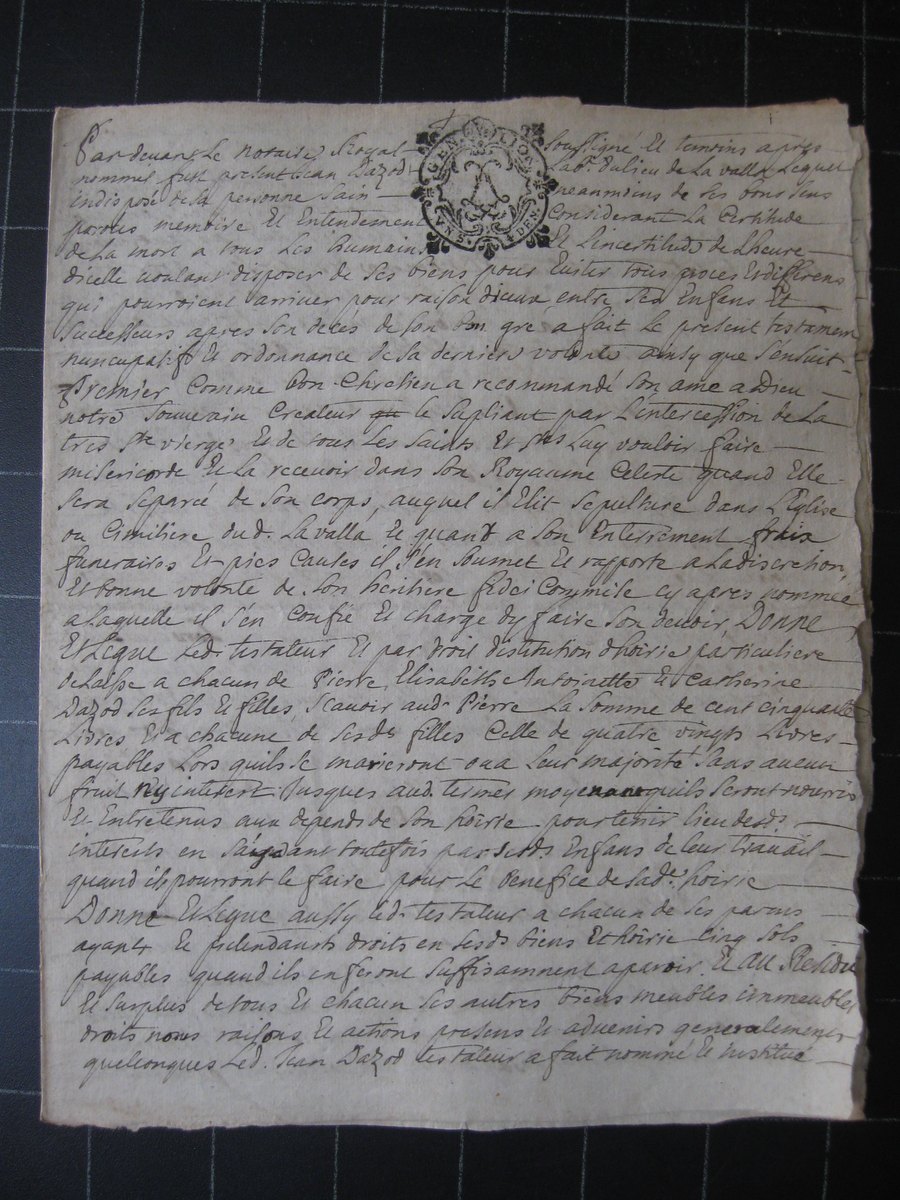 Par devant Le Notaire Royal soussigné Et temoins apres
nommes fust present Jean Dazod Lab.r dulieu de La valla Lequel
indisposé de sa personne sain neanmoins de ses bons sens
parolle memoire Et Entendement Considerant La Certitude
de La mort a tous Les humains Et Lincertitude de Lheure
GEN. LYON
VNS. 4 DEN.
dicelle voulant disposer de ses biens pour Eviter tous proces Et differens
qui pourroient arriver pour raison diceux entre ses Enfans Et
successeurs apres son decés de son bon gré a fait Le present testament
nuncupatif Et ordonnance de sa derniere volonté ainsy que s'ensuit
Premier Comme bon Chretien a recommandé son ame a Dieu
notre souverain Createur le supliant par L'intercession de La
tres Ste vierge Et de tous Les saints Et stes Luy vouloir faire
misericorde Et La recevoir dans son Royaume Celeste quand Elle
sera separée de son corps, auquel il Elit sepulture dans L'Eglise
ou Cimitiere dud. La valla Et quand a son Enterrement frais
funeraires Et pies causes il s'en soumet Et rapporte a La discretion
Et bonne volonté de son heritiere fidei Commise cy apres nommée
a Laquelle il s'en confie Et charge dy faire son devoir Donne
Et Legue Led. testateur Et par droit dinstitution dhoirie particuliere
delaisse a chacun de Pierre, Elisabeth, Antoinette Et Catherine
Dazod ses fils Et filles, scavoir aud. Pierre La somme de cent cinquante
Livres Et a chacune de sesds filles Celle de quatre vingts Livres
payables Lors quils se marieront ou a Leur majorité sans aucun
fruit ny interest Jusques aud. termes moyenant quils seront nourris
Et Entretenus aux depends de son hoirie pour tenir Lieu desds
interets en s'aydant toutefois par sesds. Enfans de leur travail
quand ils pourront le faire pour Le benefice de sade. hoirie
Donne Et Legue aussy led. testateur a chacun de ses parens
ayant Et pretendants droits en sesds biens Et hoirie Cinq sols
payables quand ils en feront suffisamment aparoir, Et au Residu
Et surplus de tous Et chacun ses autres biens meubles immeubles
droits noms raisons Et actions presens Et advenirs generalement
quelconques Led. Jean Dazod testateur a fait nommé Et institué